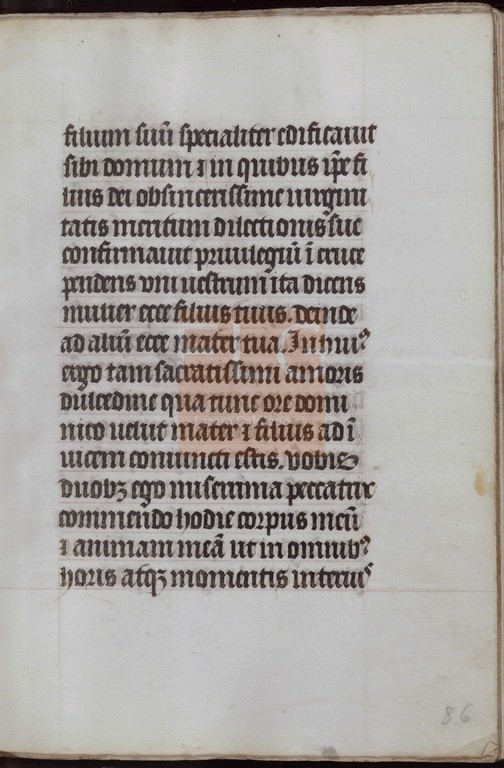 filium suū specialiter edificauit
sibi domum ⁊ in quibus ip̄e fi
lius dei ob sincerissime uirgini
tatis meritum dilectionis sue
confirmauit priuulegiū ī cruce
pendens vni uestrum ita dicens
mulier ecce filius tuus. deinde
ad aliū ecce mater tua. In huiꝰ
ergo tam sacratissimi amoris
dulcedine qua tunc ore domi
nico uelut mater ⁊ filius ad ī
uicem coniuncti estis. vobis
duobꝫ ego miserrima peccatrix
commendo hodie corpus meū
⁊ animam meā ut in omnibꝰ
horis atqꝫ momentis interiꝰ
86